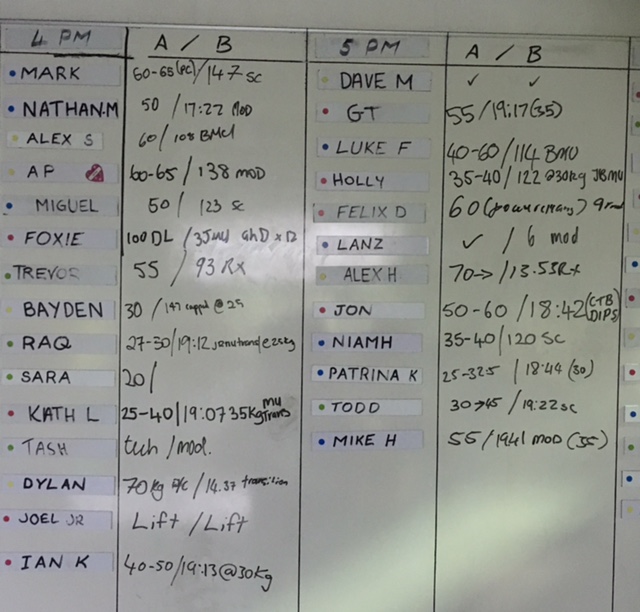 4 PM A / B
MARK 60-65(PC)/147 SC
NATHAN.M 50 /17:22 MOD
ALEX S 60/108 BMU
AP 60-65/138 MOD
MIGUEL 50 / 123 SC
FOXIE 100 DL / 35 GHD x 12
TREVOR 55 / 93 Rx
BAYDEN 30 / 147 @ 25
RAQ 27-30/19:12 @25kg
SARA 20/
KATH L 25-40/19:07 35kg MU Trans
TASH tech /mod.
DYLAN 70kg P/C /14.37 transition
JOEL JR Lift /Lift
IAN K 40-50/19:13@30kg
5 PM A / B
DAVE M ✓ ✓
GT 55/19:17(35)
LUKE F 40-60/114 BMU
HOLLY 35-40/122 @30kg JBMU
FELIX D 60
LANZ ✓ / 6 mod
ALEX H 70→/13.53Rx
JON 50-60/18:42(CTB DIPS)
NIAMH 35-40/120 SC
PATRINA K 25-32.5 / 18:44 (30)
TODD 30→45 /19:22sc
MIKE H 55/1941 MOD (35)